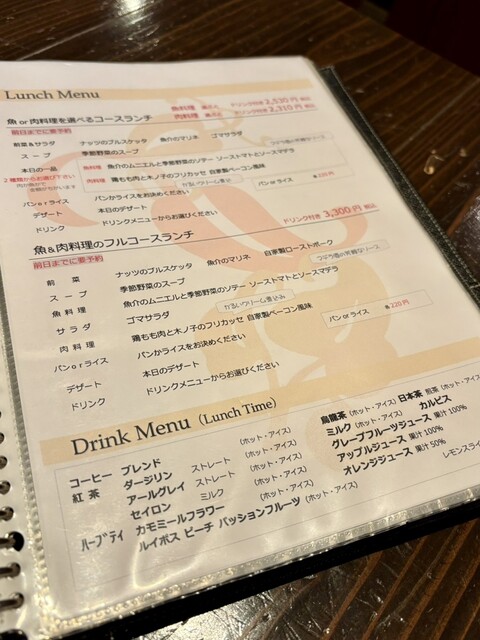 Lunch Menu
魚 or 肉料理を選べるコースランチ
魚料理 ドリンク付き 2,530円
肉料理 ドリンク付き 2,310円
前日までに要予約
前菜&サラダ ナッツのブルスケッタ 魚介のマリネ ゴマサラダ
スープ 季節野菜のスープ
本日の一品 魚料理 魚介のムニエルと季節野菜のソテー ソーストマトとソースマデラ
2種類からお選び下さい 肉料理 鶏もも肉と木ノ子のフリカッセ 自家製ベーコン風味
かるいクリーム煮込み
パンorライス パンかライスをお決めください
パン or ライス
デザート 本日のデザート
ドリンク ドリンクメニューからお選びください
魚&肉料理のフルコースランチ
ドリンク付き 3,300円
前日までに要予約
前菜 ナッツのブルスケッタ 魚介のマリネ 自家製ローストポーク
スープ 季節野菜のスープ
魚料理 魚介のムニエルと季節野菜のソテー ソーストマトとソースマデラ
サラダ ゴマサラダ
かるいクリーム煮込み
肉料理 鶏もも肉と木ノ子のフリカッセ 自家製ベーコン風味
パンorライス パンかライスをお決めください
パン or ライス 220円
デザート 本日のデザート
ドリンク ドリンクメニューからお選びください
Drink Menu (Lunch Time)
コーヒー ブレンド (ホット・アイス)
紅茶 ダージリン ストレート (ホット・アイス)
アールグレイ ストレート (ホット・アイス)
セイロン ミルク (ホット・アイス)
ハーブティ カモミールフラワー (ホット・アイス)
ルイボス ピーチ パッションフルーツ (ホット・アイス)
烏龍茶 (ホット・アイス) 日本茶 煎茶 (ホット・アイス)
ミルク (ホット・アイス) カルピス
グレープフルーツジュース 果汁100%
アップルジュース 果汁100%
オレンジジュース 果汁50%
レモンスライ